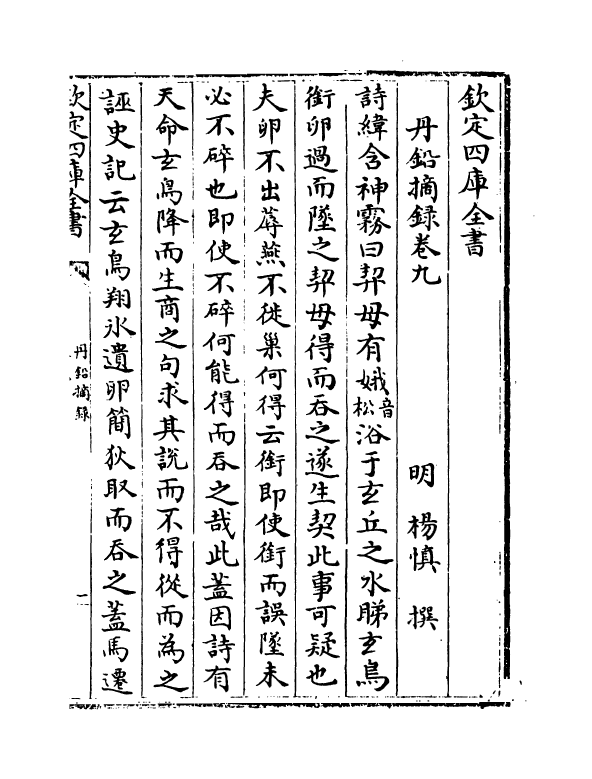 欽定四庫全書
丹鉛摘録卷九
明 楊慎 撰
詩緯含神霧曰契母有娥音松浴于玄丘之水睇玄鳥
銜卵過而墜之契母得而吞之遂生契此事可疑也
夫卵不出蓐燕不徙巢何得云銜即使銜而誤墜未
必不碎也即使不碎何能得而吞之哉此蓋因詩有
天命玄鳥降而生商之句求其說而不得從而為之
誣史記云玄鳥翔水遺卵簡狄取而吞之蓋馬遷
欽定四庫全書
丹鉛摘録
一